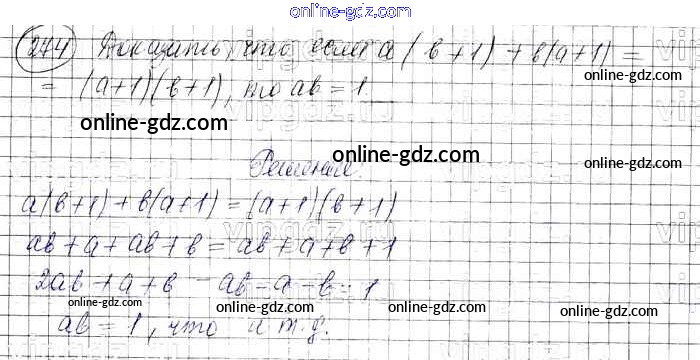 online-gdz.com
274 Доказать, что если a(b+1)+b(a+1)=
=(a+1)(b+1), то ab=1.
online-gdz.com
online-gdz.com
online-gdz.com
Решение
a(b+1)+b(a+1)=(a+1)(b+1)
ab+a+ab+b=ab+a+b+1
online-gdz.com
2ab+a+b-ab-a-b=1
online-gdz.com
online-gdz.com
ab=1, что и т.д.